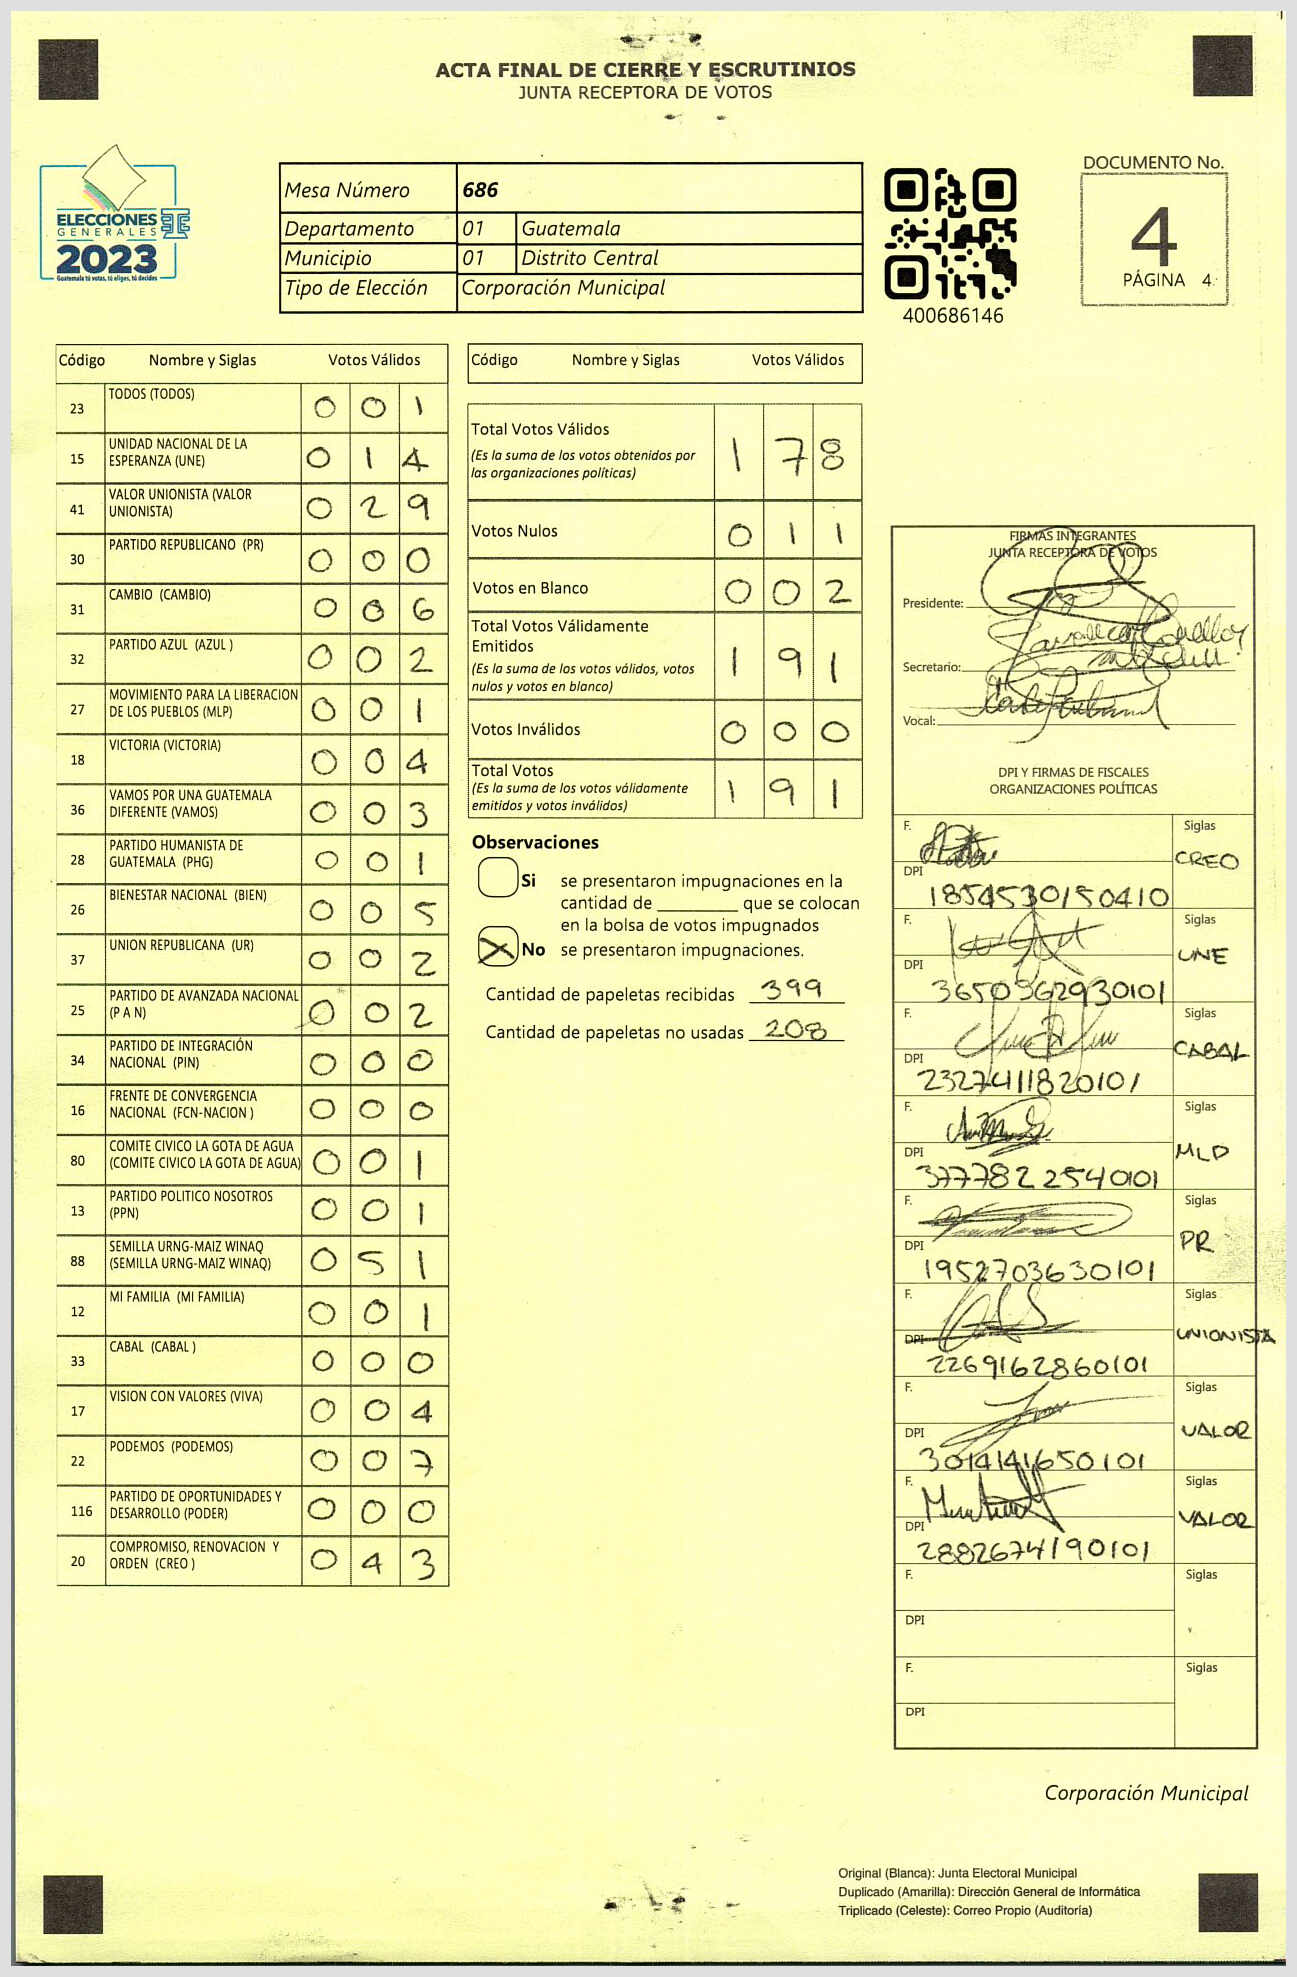 ACTA FINAL DE CIERRE Y ESCRUTINIOS
JUNTA RECEPTORA DE VOTOS
ELECCIONES
GENERALES
2023
Guatemala tú votas, tú eliges, tú decides
Mesa Número 686
Departamento 01 Guatemala
Municipio 01 Distrito Central
Tipo de Elección Corporación Municipal
400686146
DOCUMENTO No.
4
PÁGINA 4
Código Nombre y Siglas Votos Válidos
23 TODOS (TODOS) 0 0 1
15 UNIDAD NACIONAL DE LA
ESPERANZA (UNE) 0 1 4
41 VALOR UNIONISTA (VALOR
UNIONISTA) 0 2 9
30 PARTIDO REPUBLICANO (PR) 0 0 0
31 CAMBIO (CAMBIO) 0 0 6
32 PARTIDO AZUL (AZUL ) 0 0 2
27 MOVIMIENTO PARA LA LIBERACION
DE LOS PUEBLOS (MLP) 0 0 1
18 VICTORIA (VICTORIA) 0 0 4
36 VAMOS POR UNA GUATEMALA
DIFERENTE (VAMOS) 0 0 3
28 PARTIDO HUMANISTA DE
GUATEMALA (PHG) 0 0 1
26 BIENESTAR NACIONAL (BIEN) 0 0 5
37 UNION REPUBLICANA (UR) 0 0 2
25 PARTIDO DE AVANZADA NACIONAL
(P A N) 0 0 2
34 PARTIDO DE INTEGRACIÓN
NACIONAL (PIN) 0 0 0
16 FRENTE DE CONVERGENCIA
NACIONAL (FCN-NACION ) 0 0 0
80 COMITE CIVICO LA GOTA DE AGUA
(COMITE CIVICO LA GOTA DE AGUA) 0 0 1
13 PARTIDO POLITICO NOSOTROS
(PPN) 0 0 1
88 SEMILLA URNG-MAIZ WINAQ
(SEMILLA URNG-MAIZ WINAQ) 0 5 1
12 MI FAMILIA (MI FAMILIA) 0 0 1
33 CABAL (CABAL ) 0 0 0
17 VISION CON VALORES (VIVA) 0 0 4
22 PODEMOS (PODEMOS) 0 0 7
116 PARTIDO DE OPORTUNIDADES Y
DESARROLLO (PODER) 0 0 0
20 COMPROMISO, RENOVACION Y
ORDEN (CREO ) 0 4 3
Código Nombre y Siglas Votos Válidos
Total Votos Válidos
(Es la suma de los votos obtenidos por
las organizaciones políticas) 1 7 8
Votos Nulos 0 1 1
Votos en Blanco 0 0 2
Total Votos Válidamente
Emitidos
(Es la suma de los votos válidos, votos
nulos y votos en blanco) 1 9 1
Votos Inválidos 0 0 0
Total Votos
(Es la suma de los votos válidamente
emitidos y votos inválidos) 1 9 1
Observaciones
Si se presentaron impugnaciones en la
cantidad de ________ que se colocan
en la bolsa de votos impugnados
X No se presentaron impugnaciones.
Cantidad de papeletas recibidas 399
Cantidad de papeletas no usadas 208
FIRMAS INTEGRANTES
JUNTA RECEPTORA DE VOTOS
Presidente:
Secretario:
Vocal:
DPI Y FIRMAS DE FISCALES
ORGANIZACIONES POLÍTICAS
F. Siglas
CREO
DPI
1854530150410
F. Siglas
UNE
DPI
3650962930101
F. Siglas
CABAL
DPI
2327411820101
F. Siglas
MLP
DPI
3777822540101
F. Siglas
PR
DPI
1952703630101
F. Siglas
UNIONISTA
DPI
2269162860101
F. Siglas
VALOR
DPI
3014141650101
F. Siglas
VALOR
DPI
2882674190101
F. Siglas
DPI
F. Siglas
DPI
Corporación Municipal
Original (Blanca): Junta Electoral Municipal
Duplicado (Amarilla): Dirección General de Informática
Triplicado (Celeste): Correo Propio (Auditoría)